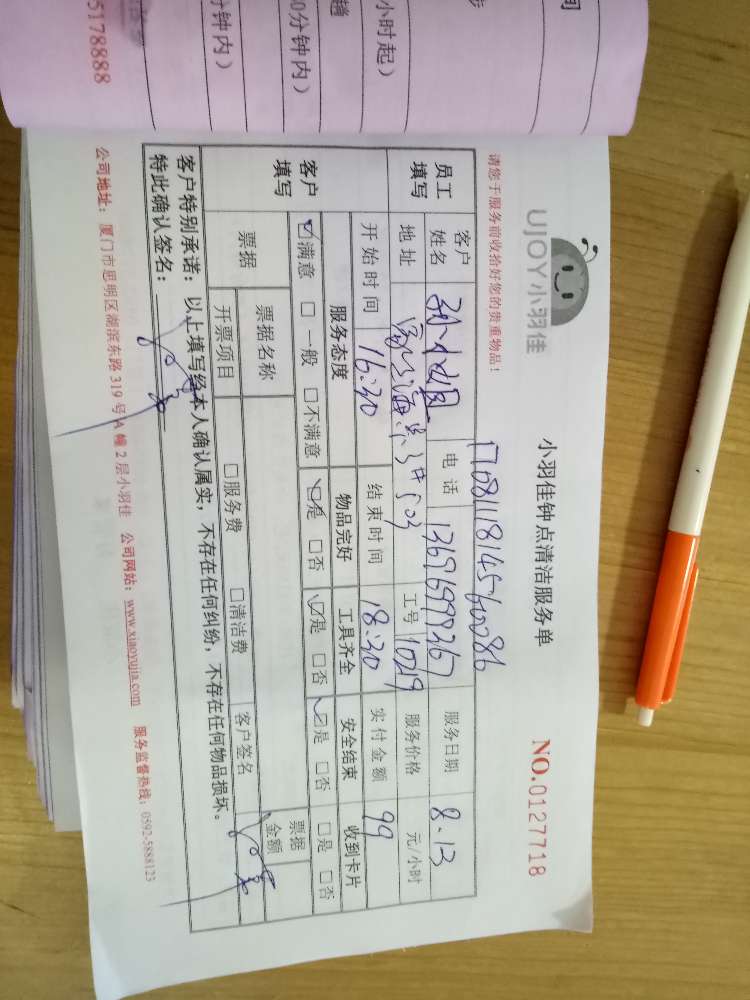 UJOY小羽佳
小羽佳钟点清洁服务单
NO.0127718
请您于服务前收拾好您的贵重物品！
170811814560086
员工填写
客户姓名
电话 13696999267
服务日期 8.13
地址
工号 10219
服务价格 元/小时
开始时间 16:30
结束时间 18:30
实付金额 99
客户填写
服务态度 物品完好 工具齐全 安全结束 收到卡片
☑满意 □一般 □不满意 ☑是 □否 ☑是 □否 ☑是 □否 □是 □否
票据 票据名称 票据金额
开票项目 □服务费 □清洁费 客户签名
客户特别承诺：以上填写经本人确认属实，不存在任何纠纷，不存在任何物品损坏。
特此确认签名：
公司地址：厦门市思明区湖滨东路319号A幢2层小羽佳 公司网站：www.xiaoyujia.com 服务监督热线：0592-5888123
小时起）
0分钟内）
分钟内）
5178888